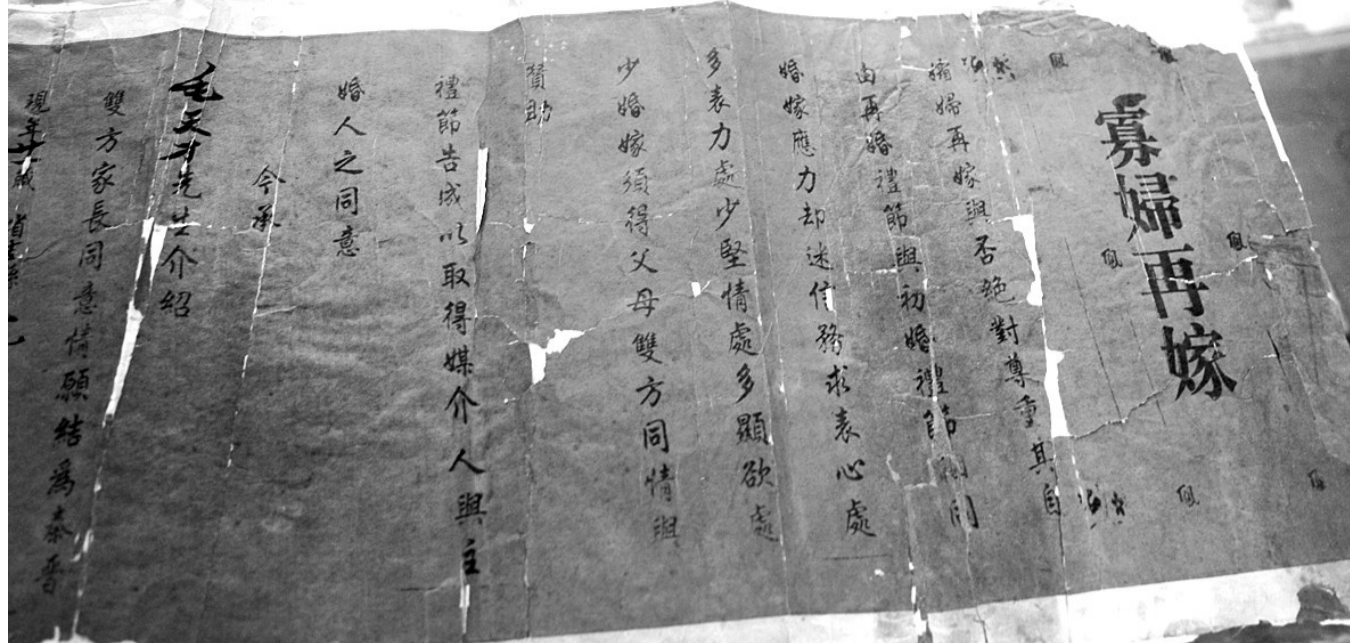 寡婦再嫁
孀婦再嫁與否絕對尊重其自
由再婚禮節與初婚禮節相同
婚嫁應力却迷信務求表心處
多表力處少堅情處多顯欲處
少婚嫁須得父母雙方同情與
贊助
禮節告成以取得媒介人與主
婚人之同意
今承
毛天才先生介紹
雙方家長同意情願結為秦晉
現年廿歲